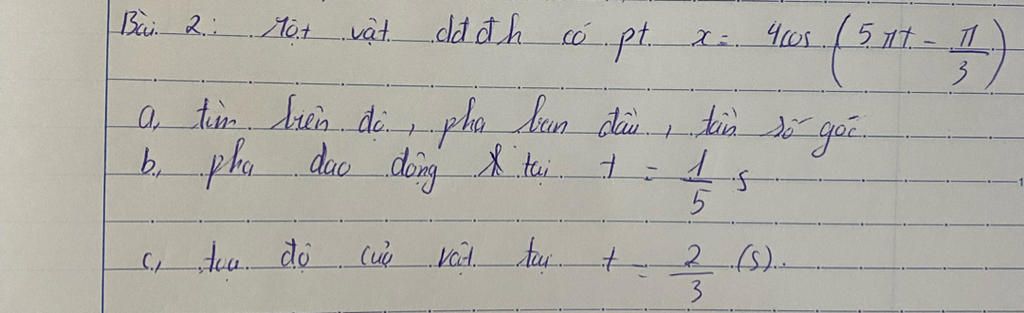 Bài 2: Một vật dđđh có pt x = 4cos (5πt - π/3)
a, tìm biên độ, pha ban đầu, tần số góc.
b, pha dao động tại t = 1/5 s
c, tọa độ của vật tại t = 2/3 (s).